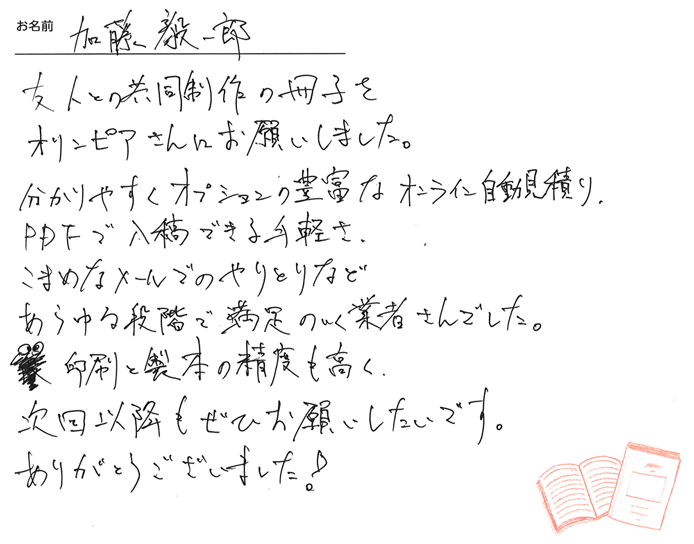 お名前 加藤毅一郎
友人との共同制作の冊子を
オリンピアさんにお願いしました。
分かりやすくオプションの豊富なオンライン自動見積り、
PDFで入稿できる手軽さ、
こまめなメールでのやりとりなど
あらゆる段階で満足のいく業者さんでした。
印刷と製本の精度も高く、
次回以降もぜひお願いしたいです。
ありがとうございました!